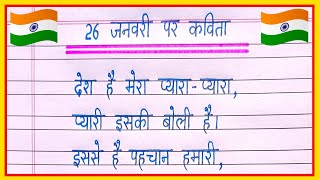 26 जनवरी पर कविता
देश है मेरा प्यारा-प्यारा,
प्यारी इसकी बोली है।
इससे है पहचान हमारी,